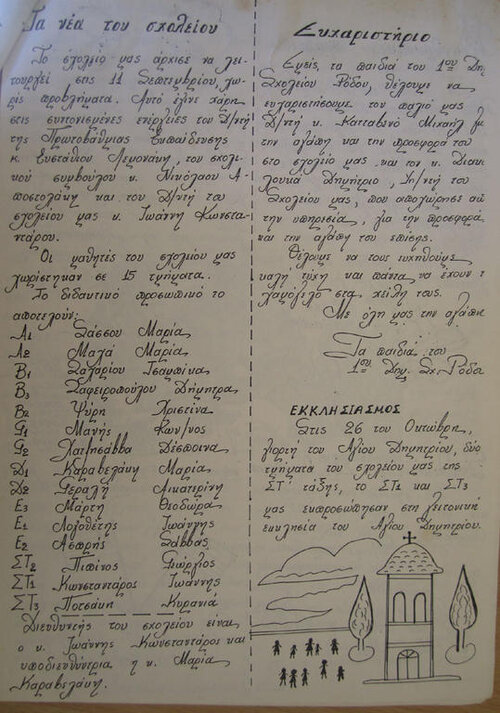 Τα νέα του σχολείου
Το σχολείο μας άρχισε να λει-
τουργεί στις 11 Σεπτεμβρίου, χω-
ρίς προβλήματα. Αυτό έγινε χάρη
στις συντονισμένες ενέργειες του Δ/ντή
της Πρωτοβάθμιας Εκπαίδευσης
κ. Ευστάθιου Λεμονάκη, του σχολι-
κού συμβούλου κ. Νικόλαου Α-
ποστολάκη και του Δ/ντή του
σχολείου μας κ. Ιωάννη Κωνστα-
ντάρου.
Οι μαθητές του σχολείου μας
χωρίστηκαν σε 15 τμήματα.
Το διδακτικό προσωπικό το
αποτελούν:
Α1 Σάσσου Μαρία
Α2 Μαλά Μαρία
Β1 Σαλαρίου Τσαμπίκα
Β3 Σαφειροπούλου Δήμητρα
Β2 Ψύρη Χριστίνα
Γ1 Μανής Κων/νος
Γ2 Χατζησάββα Δέσποινα
Δ1 Καραβελάκη Μαρία
Δ2 Γεραλή Αικατερίνη
Ε3 Μάρτη Θεοδώρα
Ε1 Λογοθέτης Ιωάννης
Ε2 Σάββας
ΣΤ2 Πιπίνος Γεώργιος
ΣΤ1 Κωνσταντάρος Ιωάννης
ΣΤ3 Ποτσάκη Κυρανιά
Διευθυντής του σχολείου είναι
ο κ. Ιωάννης Κωνσταντάρος και
υποδιευθύντρια η κ. Μαρία
Καραβελάκη.
Ευχαριστήριο
Εμείς, τα παιδιά του 1ου Δη.
Σχολείου Ρόδου, θέλουμε να
ευχαριστήσουμε τον παλιό μας
Δ/ντή κ. Κατταβενό Μιχαήλ γι
την αγάπη και την προσφορά του
στο σχολείο μας και τον κ. Διακι
Δημήτριο, Υπ/ντή του
Σχολείου μας, που αποχώρησε απ
την υπηρεσία, για την προσφορά
και την αγάπη του επίσης.
Θέλουμε να τους ευχηθούμε
καλή τύχη και πάντα να έχουν τ
χαμόγελο στα χείλη τους.
Με όλη μας την αγάπη
Τα παιδιά του
1ου Δημ. Σχ. Ρόδου
ΕΚΚΛΗΣΙΑΣΜΟΣ
Στις 26 του Οκτώβρη,
γιορτή του Αγίου Δημητρίου, δύο
τμήματα του σχολείου μας της
ΣΤ΄ τάξης, το ΣΤ1 και ΣΤ3
μας εκπροσώπησαν στη γειτονική
εκκλησία του Αγίου Δημητρίου.